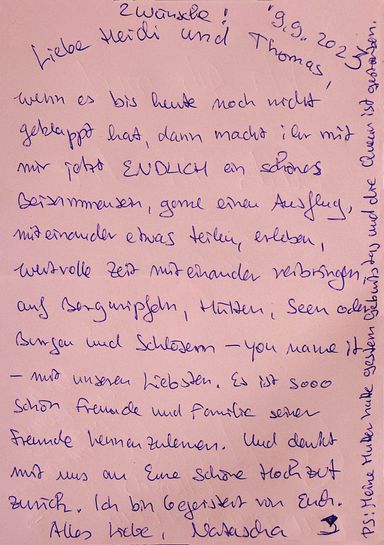 2 Wünsche! 9.9.202
Liebe Heidi und Thomas,
wenn es bis heute noch nicht
geklappt hat, dann macht ihr mit
mir jetzt ENDLICH ein schönes
Beisammensein, gerne einen Ausflug,
miteinander etwas teilen, erleben,
wertvolle Zeit miteinander verbringen,
auf Berggipfeln, Hütten, Seen oder
Burgen und Schlössern – you name it
– mit unseren Liebsten. Es ist sooo
schön Freunde und Familie seiner
Freunde kennenzulernen. Und denkt
mit uns an Eure schöne Hochzeit
zurück. Ich bin begeistert von Euch.
Alles Liebe, Natascha
PS: Meine Mutter hatte gestern Geburtstag und die Queen ist gestorben.